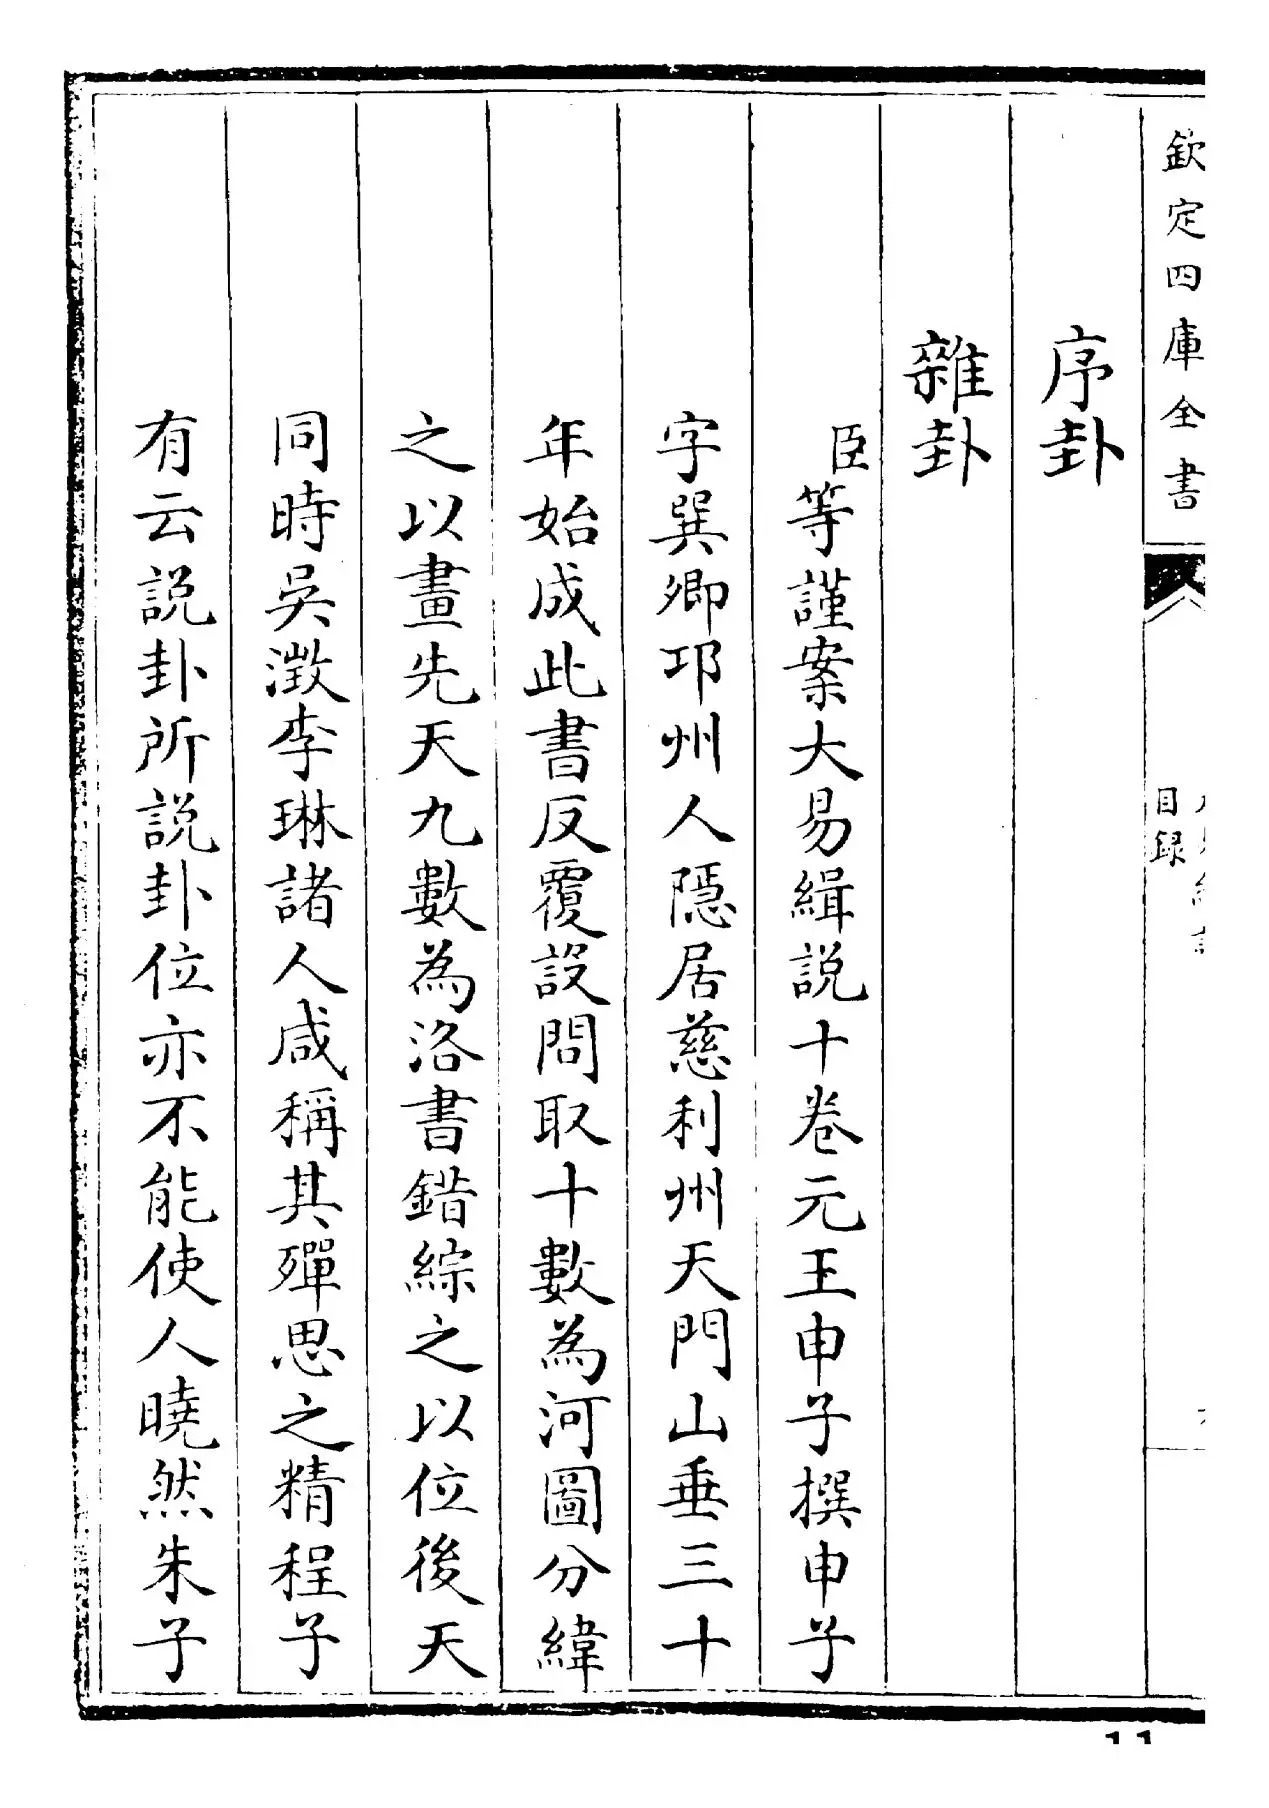 欽定四庫全書
目録
序卦
雜卦
臣等謹案大易緝説十卷元王申子撰申子
字巽卿邛州人隱居慈利州天門山垂三十
年始成此書反覆設問取十數為河圖分緯
之以畫先天九數為洛書錯綜之以位後天
同時吳澂李琳諸人咸稱其殫思之精程子
有云説卦所説卦位亦不能使人曉然朱子
11